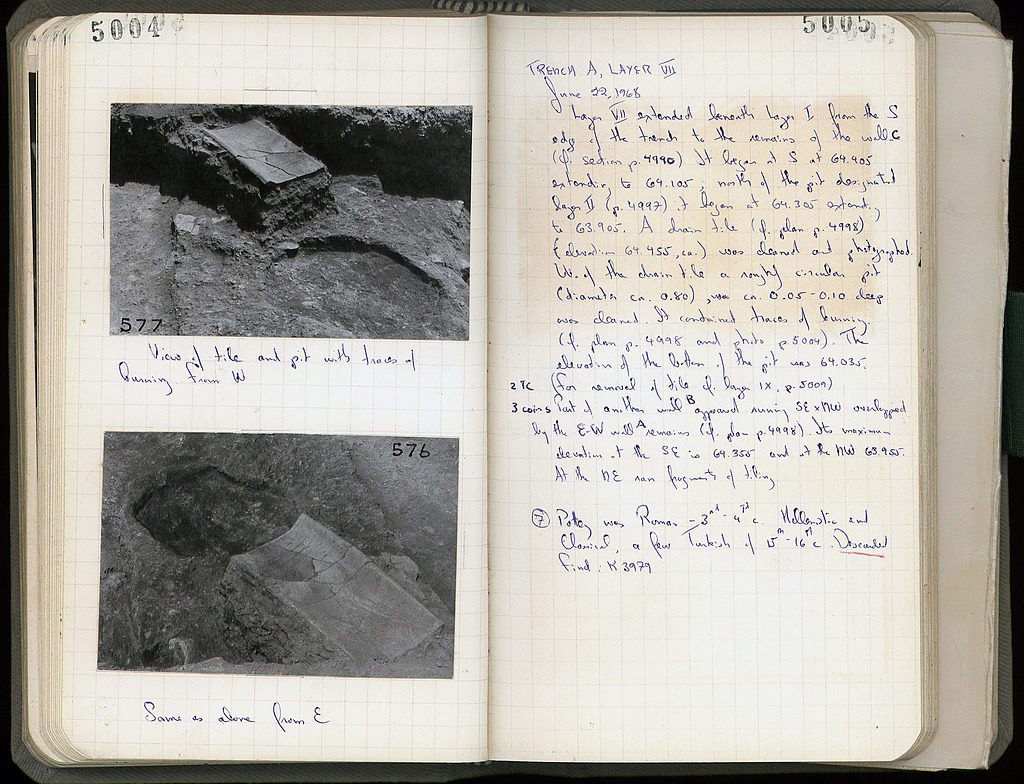 5004
577
View of tile and pit with traces of
burning from W
576
Same as above from E
5005
TRENCH A, LAYER VII
June 22, 1968
Layer VII extended beneath layer I from the S
edge of the trench to the remains of the wall C
(cf. section p. 4990) It began at S at 64.405
extending to 64.105, north of the pit designated
layer II (p. 4997) it began at 64.305 extending
to 63.905. A drain tile (cf. plan p. 4998)
(elevation 64.455, ca.) was cleaned and photographed.
W. of the drain tile a roughly circular pit
(diameter ca. 0.80), was ca. 0.05-0.10 deep
was cleaned. It contained traces of burning.
(cf. plan p. 4998 and photo p. 5004). The
elevation of the bottom of the pit was 64.035.
2 TC (For removal of tile cf. layer IX, p. 5009)
3 coins Part of another wall B appeared running SE x NW overlapped
by the E-W wall A remains (cf. plan p. 4998). Its maximum
elevation at the SE is 64.355 and at the NW 63.955.
At the NE ran fragments of tiling
(P) Pottery was Roman - 3rd - 4th c. Hellenistic and
Classical, a few Turkish of 15th - 16th c. Discarded
Find: K 3979